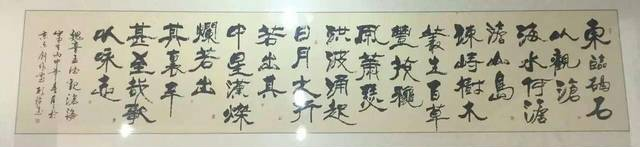 東臨碣石
以觀滄
海水何澹
澹山島
竦峙樹木
叢生百草
豐茂穐
風蕭瑟
洪波涌起
日月之行
若出其
中星漢燦
爛若出
其裏幸
甚至哉歌
以咏志
觀滄海